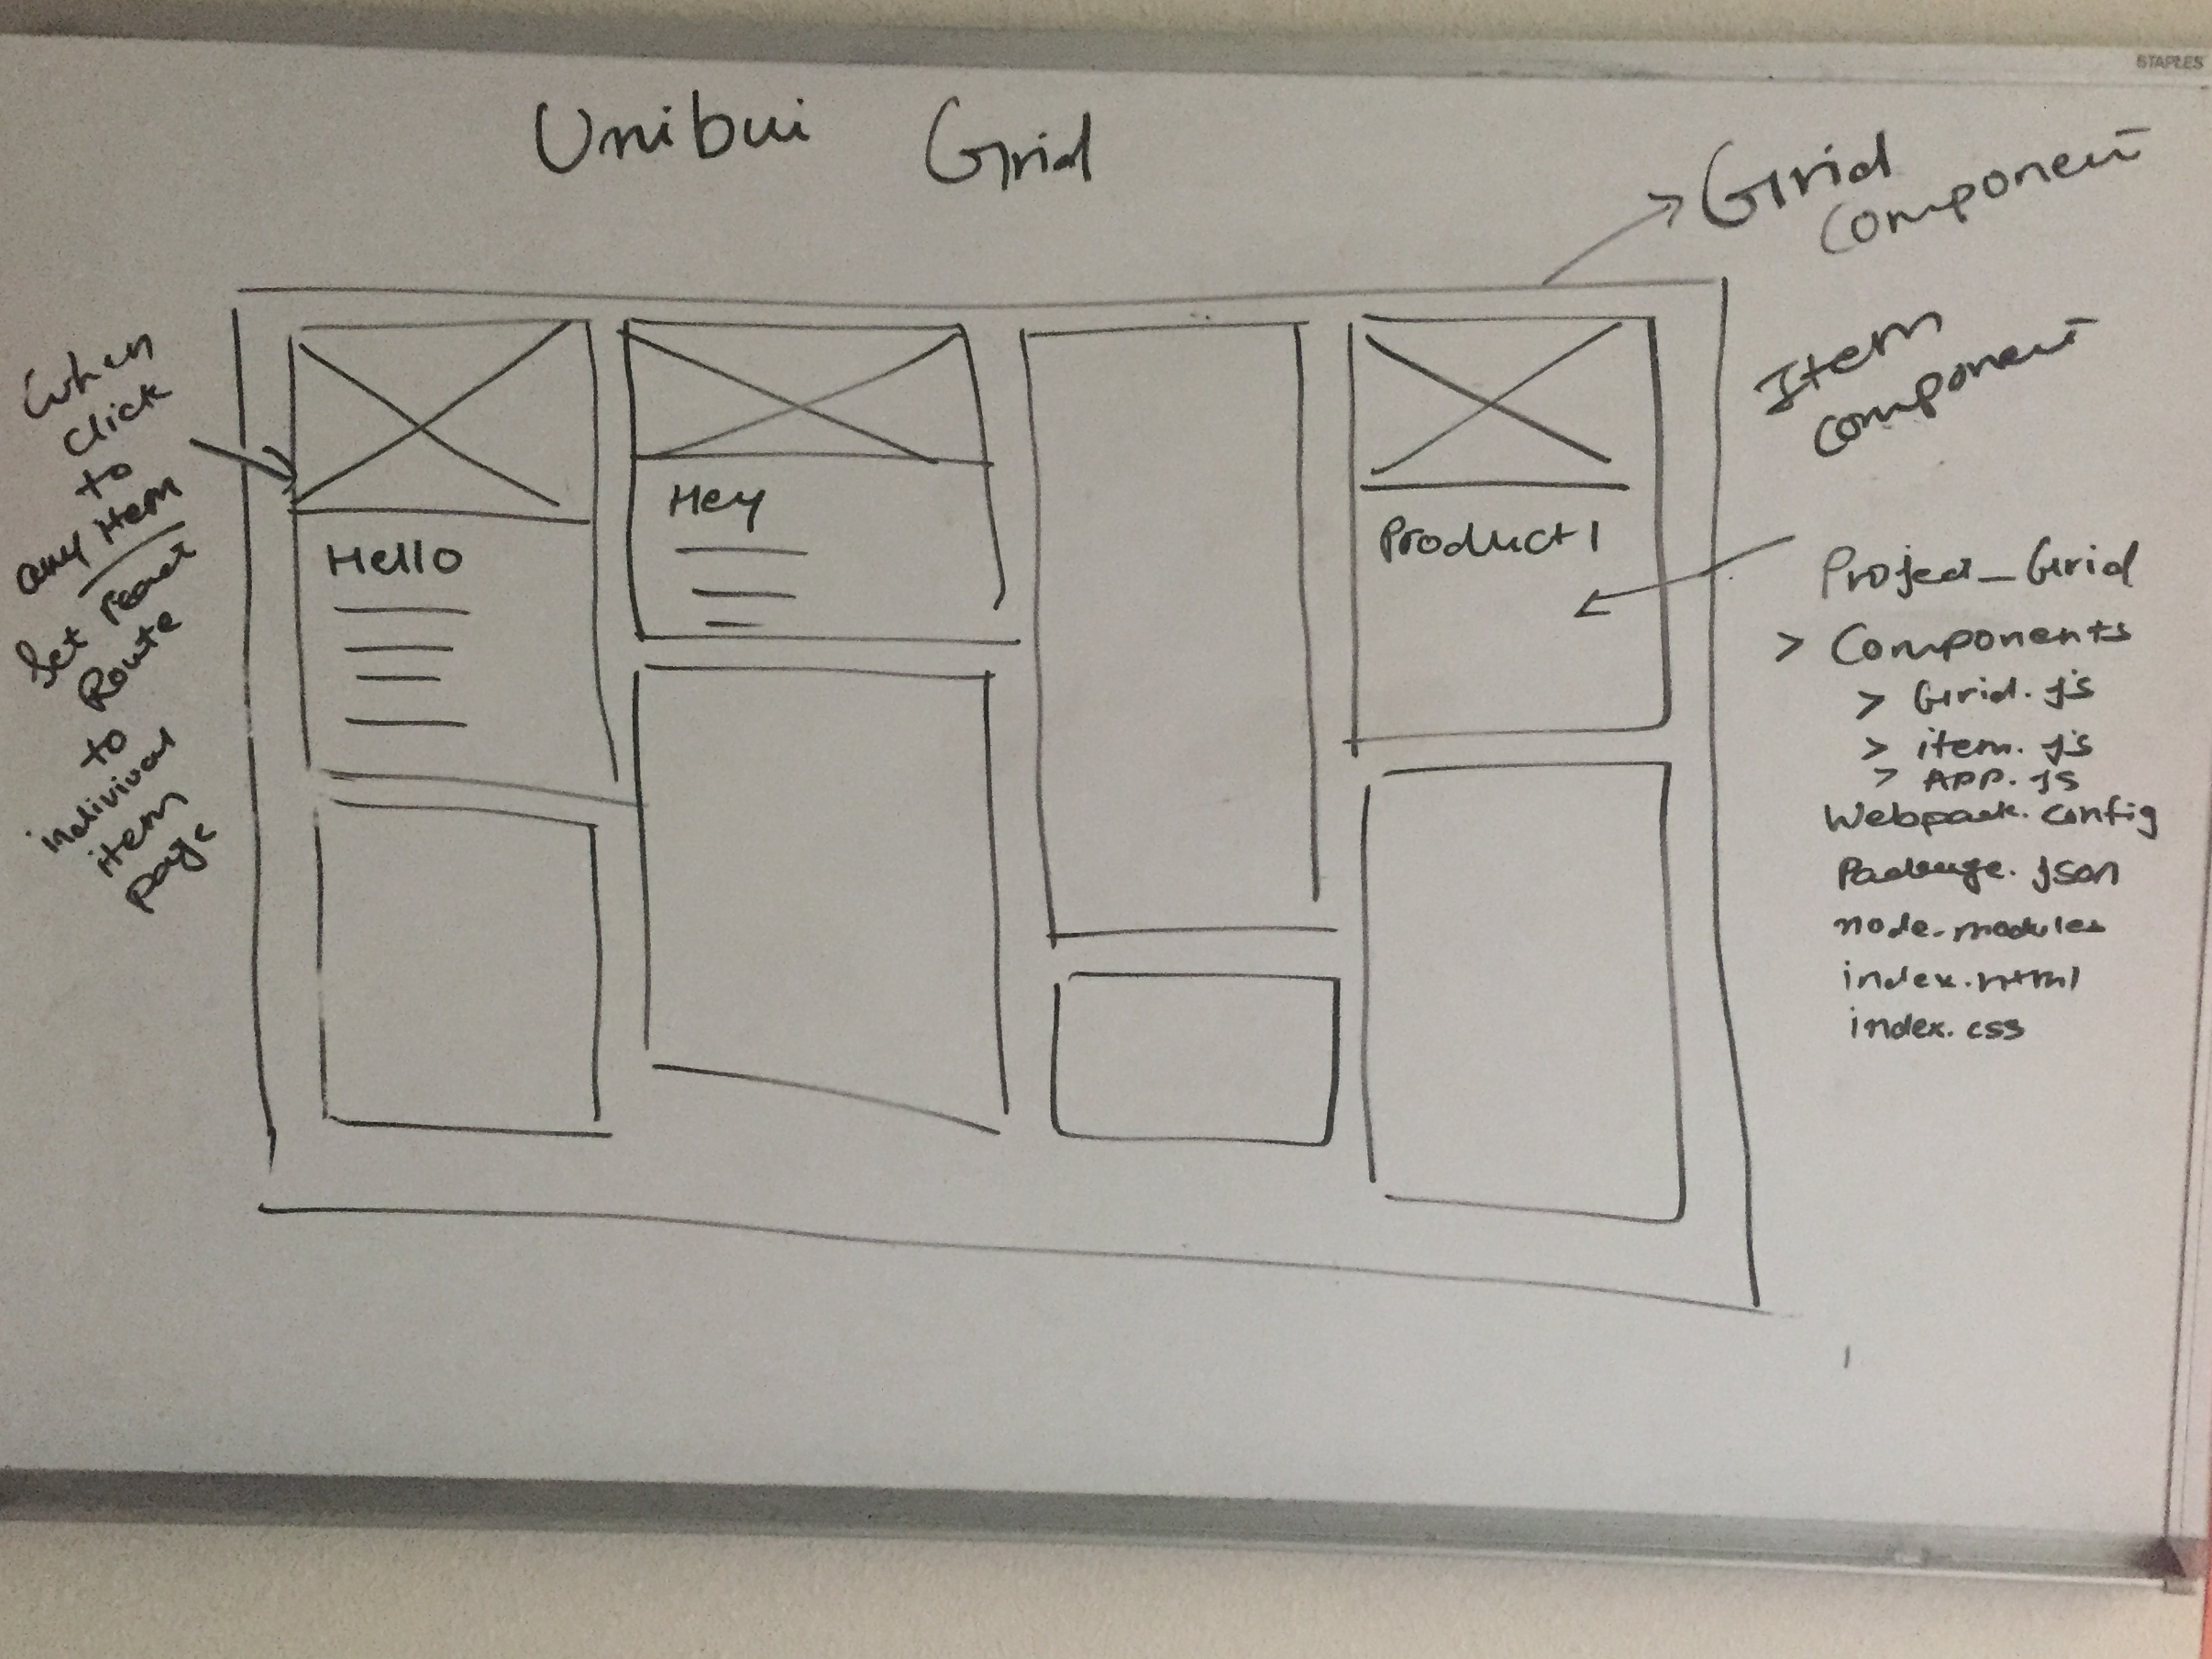 STAPLES
Unibui Grid
Grid
Component
Item
Component
When
Click
to
any item
Set react
Route
to
indivival
item
page
Hello
Hey
Product 1
Project_Grid
> Components
> Grid.js
> item.js
> APP.js
Webpack.config
Package.json
node.modules
index.html
index.css